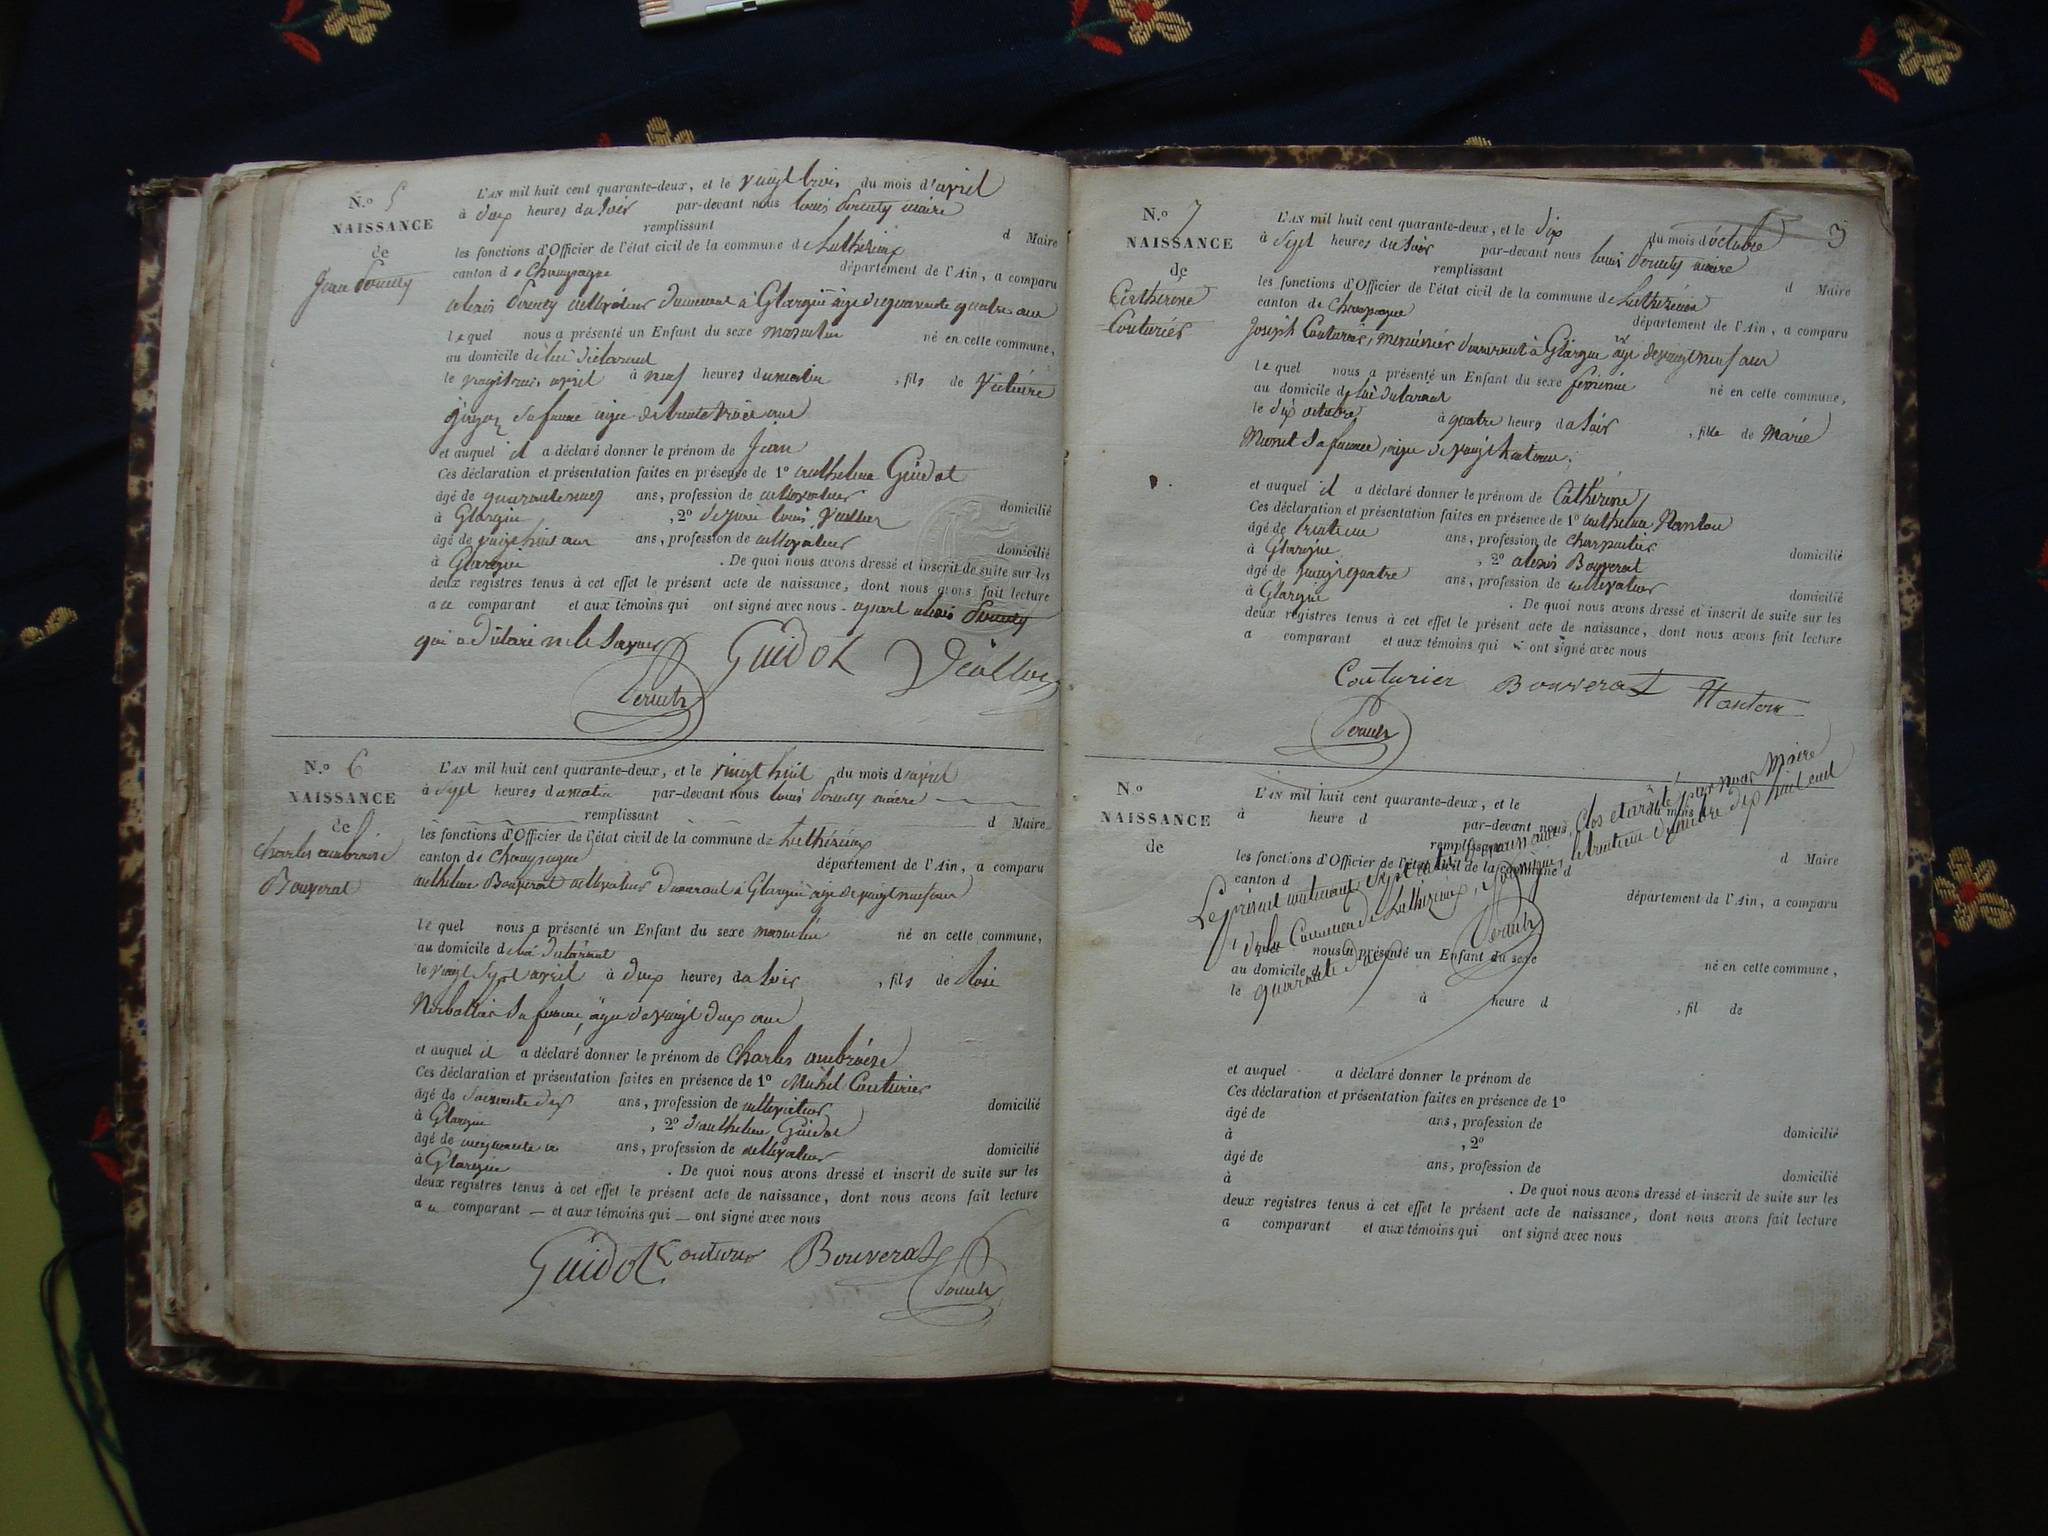 N.º 5
NAISSANCE
de
Jean
L'AN mil huit cent quarante-deux, et le vingt trois du mois d'avril
à deux heures du soir par-devant nous louis maire
remplissant d Maire
les fonctions d'Officier de l'état civil de la commune de
canton de Champagne département de l'Ain, a comparu
alexis cultivateur demeurant à âgé de quarante quatre ans
lequel nous a présenté un Enfant du sexe masculin né en cette commune,
au domicile de lui déclarant
le vingt trois avril à neuf heures du matin , fils de
sa femme âgée de trente
et auquel il a déclaré donner le prénom de Jean
Ces déclaration et présentation faites en présence de 1º anthelme Guidot
âgé de quarante neuf ans, profession de cultivateur domicilié
à , 2º louis
âgé de vingt huit ans ans, profession de cultivateur domicilié
à . De quoi nous avons dressé et inscrit de suite sur les
deux registres tenus à cet effet le présent acte de naissance, dont nous avons fait lecture
a ce comparant et aux témoins qui ont signé avec nous alexis
qui a déclaré ne le savoir
Guidot
N.º 6
NAISSANCE
de
Charles ambroise
Bouverat
L'AN mil huit cent quarante-deux, et le vingt huit du mois d'avril
à sept heures du matin par-devant nous louis maire
remplissant d Maire
les fonctions d'Officier de l'état civil de la commune de
canton de Champagne département de l'Ain, a comparu
anthelme Bouverat cultivateur demeurant à âgé de vingt neuf ans
lequel nous a présenté un Enfant du sexe masculin né en cette commune,
au domicile de lui déclarant
le vingt sept avril à deux heures du soir , fils de Rose
sa femme, âgée de vingt deux ans
et auquel il a déclaré donner le prénom de Charles ambroise
Ces déclaration et présentation faites en présence de 1º Michel Couturier
âgé de soixante dix ans, profession de cultivateur domicilié
à , 2º d'anthelme Guidot
âgé de ans, profession de cultivateur domicilié
à . De quoi nous avons dressé et inscrit de suite sur les
deux registres tenus à cet effet le présent acte de naissance, dont nous avons fait lecture
a comparant et aux témoins qui ont signé avec nous
Guidot Couturier Bouverat
3
N.º 7
NAISSANCE
de
Catherine
Couturier
L'AN mil huit cent quarante-deux, et le dix du mois d'octobre
à sept heures du soir par-devant nous louis maire
remplissant d Maire
les fonctions d'Officier de l'état civil de la commune de
canton de champagne département de l'Ain, a comparu
Joseph Couturier, demeurant à âgé de vingt neuf ans
lequel nous a présenté un Enfant du sexe féminin né en cette commune,
au domicile de lui déclarant
le dix octobre à quatre heurs du soir , fille de Marie
sa femme, âgée de
et auquel il a déclaré donner le prénom de Catherine
Ces déclaration et présentation faites en présence de 1º anthelme
âgé de ans, profession de charpentier domicilié
à , 2º alexis Bouverat
âgé de vingt quatre ans, profession de cultivateur domicilié
à . De quoi nous avons dressé et inscrit de suite sur les
deux registres tenus à cet effet le présent acte de naissance, dont nous avons fait lecture
a comparant et aux témoins qui ont signé avec nous
Couturier Bouverat
N.º
NAISSANCE
de
L'AN mil huit cent quarante-deux, et le du mois
à heure d par-devant nous
remplissant d Maire
les fonctions d'Officier de l'état civil de la commune d
canton d département de l'Ain, a comparu
Le présent contenant sept actes de naissance, clos et arrêté par nous Maire
de la Commune de le trente un décembre dix huit cent
quarante deux
nous a présenté un Enfant du sexe né en cette commune,
au domicile d
le à heure d , fil de
et auquel a déclaré donner le prénom de
Ces déclaration et présentation faites en présence de 1º
âgé de ans, profession de domicilié
à , 2º
âgé de ans, profession de domicilié
à . De quoi nous avons dressé et inscrit de suite sur les
deux registres tenus à cet effet le présent acte de naissance, dont nous avons fait lecture
a comparant et aux témoins qui ont signé avec nous